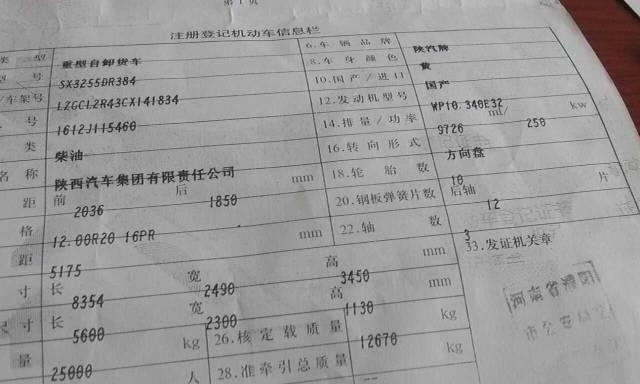 第1页
注册登记机动车信息栏
类型 重型自卸货车 6.车辆品牌 陕汽牌
型号 SX3255DR384 8.车身颜色 黄
/车架号 LZGCL2R43CX141834 10.国产/进口 国产
号 1612J115460 12.发动机型号 WP10.340E32
类 柴油 14.排量/功率 9726 ml/ 250 kw
名称 陕西汽车集团有限责任公司 16.转向形式 方向盘
距 前 2036 后 1850 mm 18.轮胎数 10
格 12.00R20 16PR 20.钢板弹簧片数 后轴 12 片
距 5175 mm 22.轴数 3
寸 长 8354 宽 2490 高 3450 mm 33.发证机关章
尺寸 长 5600 宽 2300 高 1130 mm
量 25000 kg 26.核定载质量 12670 kg
人 28.准牵引总质量 kg
河南省濮阳
市公安局